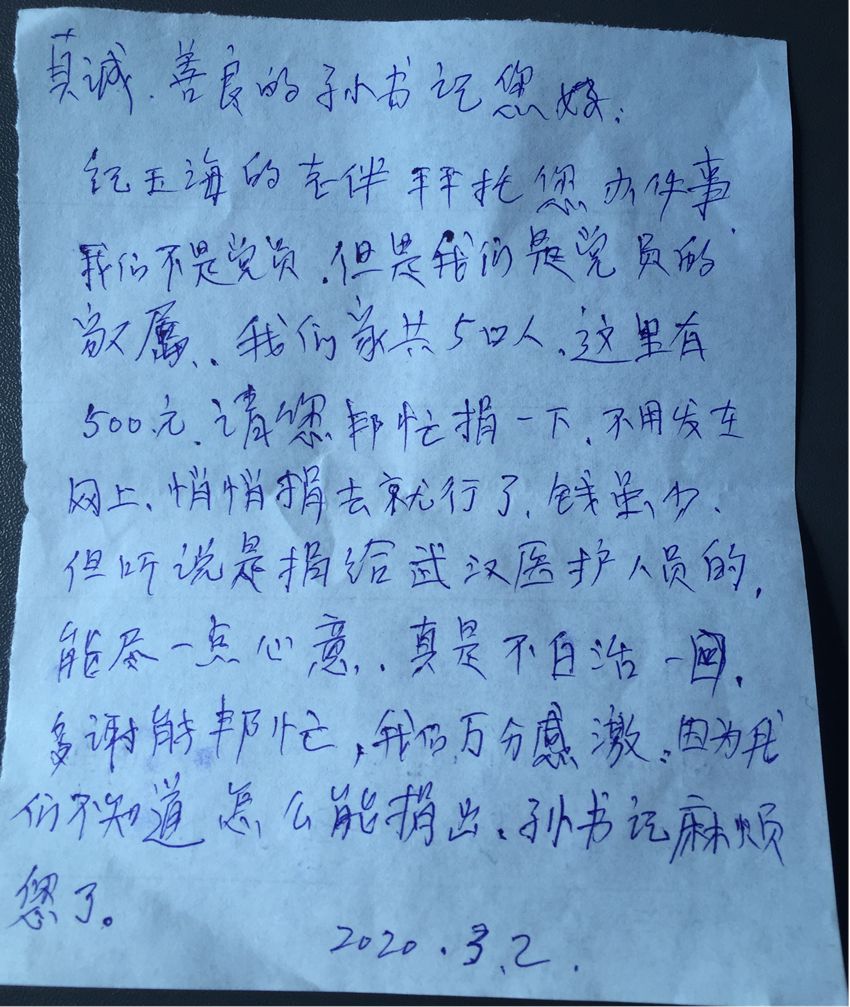 真诚.善良的孙书记您好:
纪玉海的老伴拜托您办件事
我们不是党员.但是我们是党员的
家属.我们家共5口人.这里有
500元.请您帮忙捐一下.不用发在
网上.悄悄捐去就行了.钱虽少.
但听说是捐给武汉医护人员的,
能尽一点心意.真是不白活一回.
多谢能帮忙,我们万分感激.因为我
们不知道怎么能捐出.孙书记麻烦
您了。
2020.3.2.